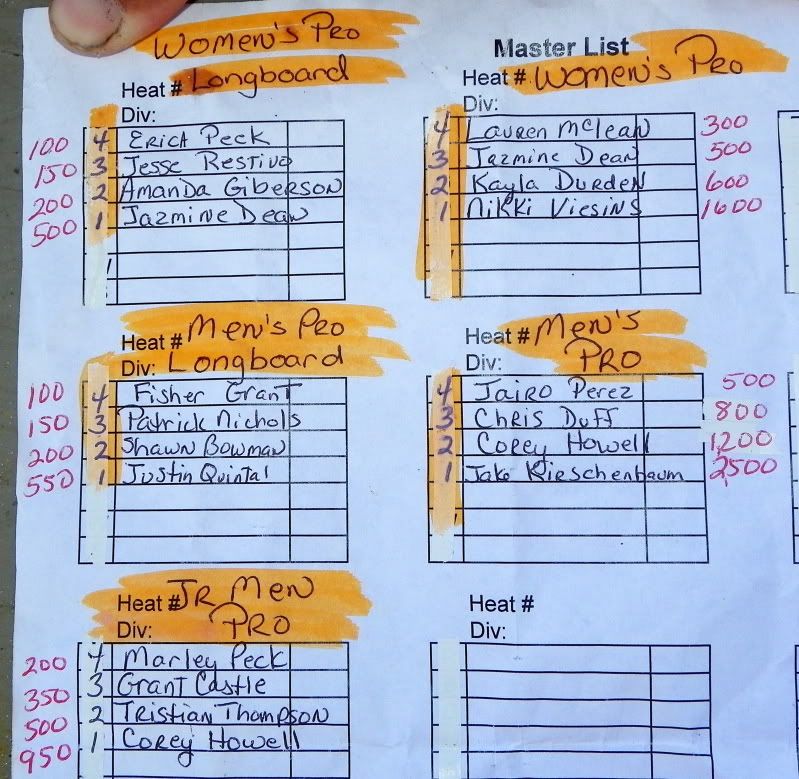 Women's Pro
Heat # Longboard
Div:
100 4 Erica Peck
150 3 Jesse Restivo
200 2 Amanda Giberson
500 1 Jazmine Dean
Master List
Heat # Women's Pro
Div:
4 Lauren McLean 300
3 Jazmine Dean 500
2 Kayla Durden 600
1 Nikki Viesins 1600
Heat # Men's Pro
Div: Longboard
100 4 Fisher Grant
150 3 Patrick Nichols
200 2 Shawn Bowman
550 1 Justin Quintal
Heat # Men's
Div: PRO
4 Jairo Perez 500
3 Chris Duff 800
2 Corey Howell 1200
1 Jake Kirschenbaum 2500
Heat # JR Men
Div: PRO
200 4 Marley Peck
350 3 Grant Castle
500 2 Tristian Thompson
950 1 Corey Howell
Heat #
Div: